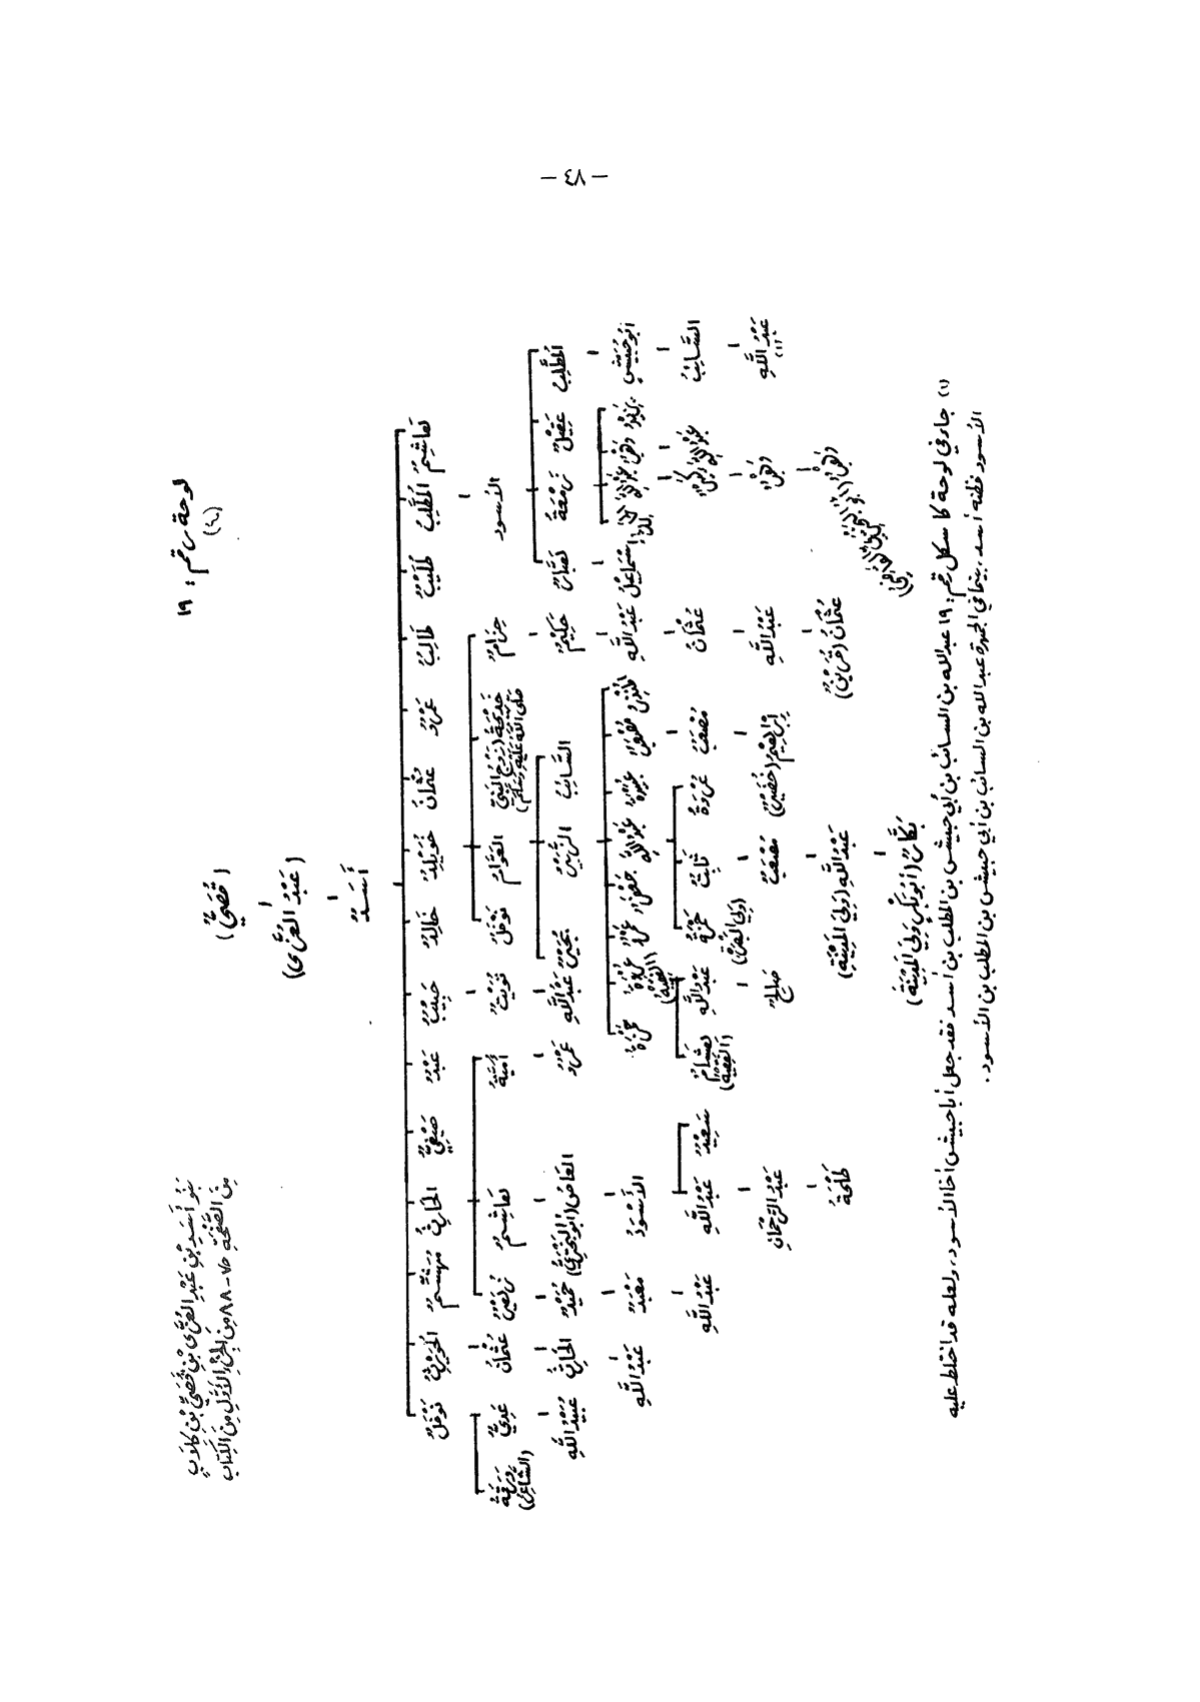 - ٧٤ -
لوحة رقم : ١٩
(٤)
بَنُو أَسَدِ بْنِ عَبْدِ العُزَّى بْنِ قُصَيِّ بْنِ كِلَابٍ
مِنَ الصَّفْحَةِ ٧٥-٨٨ مِنَ الجُزْءِ الأَوَّلِ مِنَ الكِتَابِ
(قُصَيٌّ)
(عَبْدُ العُزَّى)
أَسَدٌ
هَاشِمٌ المُطَّلِبُ طُلَيْبٌ طَالِبٌ عَمْرٌو عُثْمَانُ خُوَيْلِدٌ خَالِدٌ حَبِيبٌ عَبْدٌ صَيْفِيٌّ الحَارِثُ مُهَشِّمٌ الحُوَيْرِثُ نَوْفَلٌ
الأَسْوَد حِزَامٌ خَدِيجَةُ (زَوْجُ النَّبِيِّ صَلَّى اللَّهُ عَلَيْهِ وَسَلَّمَ) العَوَّامُ نَوْفَلٌ تُوَيْتٌ أُمَيَّةُ هَاشِمٌ زُهَيْرٌ عُثْمَانُ عَدِيٌّ وَرَقَةُ (الشَّاعِرُ)
المُطَّلِبُ عَقِيلٌ زَمْعَةُ هَبَّارٌ حَكِيمٌ السَّائِبُ الزُّبَيْرُ بُحَيْرٌ عَبْدُ اللَّهِ عَمْرٌو العَاصُ (أَبُو البَخْتَرِيِّ) حُمَيْدٌ الحَارِثُ عُبَيْدُ اللَّهِ
أَبُو حُبَيْشٍ وَهْبٌ إِسْمَاعِيلُ عَبْدُ اللَّهِ المُنْذِرُ مُصْعَبٌ عُبَيْدَةُ عَبْدُ اللَّهِ جَعْفَرٌ عَمْرٌو عُرْوَةُ الأَسْوَدُ مَعْبَدٌ عَبْدُ اللَّهِ
السَّائِبُ عُثْمَانُ مُصْعَبٌ عُرْوَةُ ثَابِتٌ حَمْزَةُ (وَلِيَ البَصْرَةَ) عَبْدُ اللَّهِ هِشَامٌ سَعِيدٌ عَبْدُ اللَّهِ عَبْدُ اللَّهِ
عَبْدُ اللَّهِ (١) وَهْبٌ عَبْدُ اللَّهِ إِبْرَاهِيمُ (خُضَيْرٌ) مُصْعَبٌ صَالِحٌ عَبْدُ الرَّحْمَانِ
وَهْبٌ عُثْمَانُ (قَرِينٌ) عَبْدُ اللَّهِ (وَلِيَ المَدِينَةَ) طَلْحَةُ
بَكَّارٌ (أَبُو بَكْرٍ وَلِيَ المَدِينَةَ)
(١) جاء في لوحة كاسكل رقم : ١٩ عبد الله بن السائب بن أبي حبيش بن المطلب بن أسد فقد جعل أبا حبيش أخا الأسود، ولعله قد اختلط عليه
الأسود فظنه أسد، بينما في الجمهرة عبد الله بن السائب بن أبي حبيش بن المطلب بن الأسود .